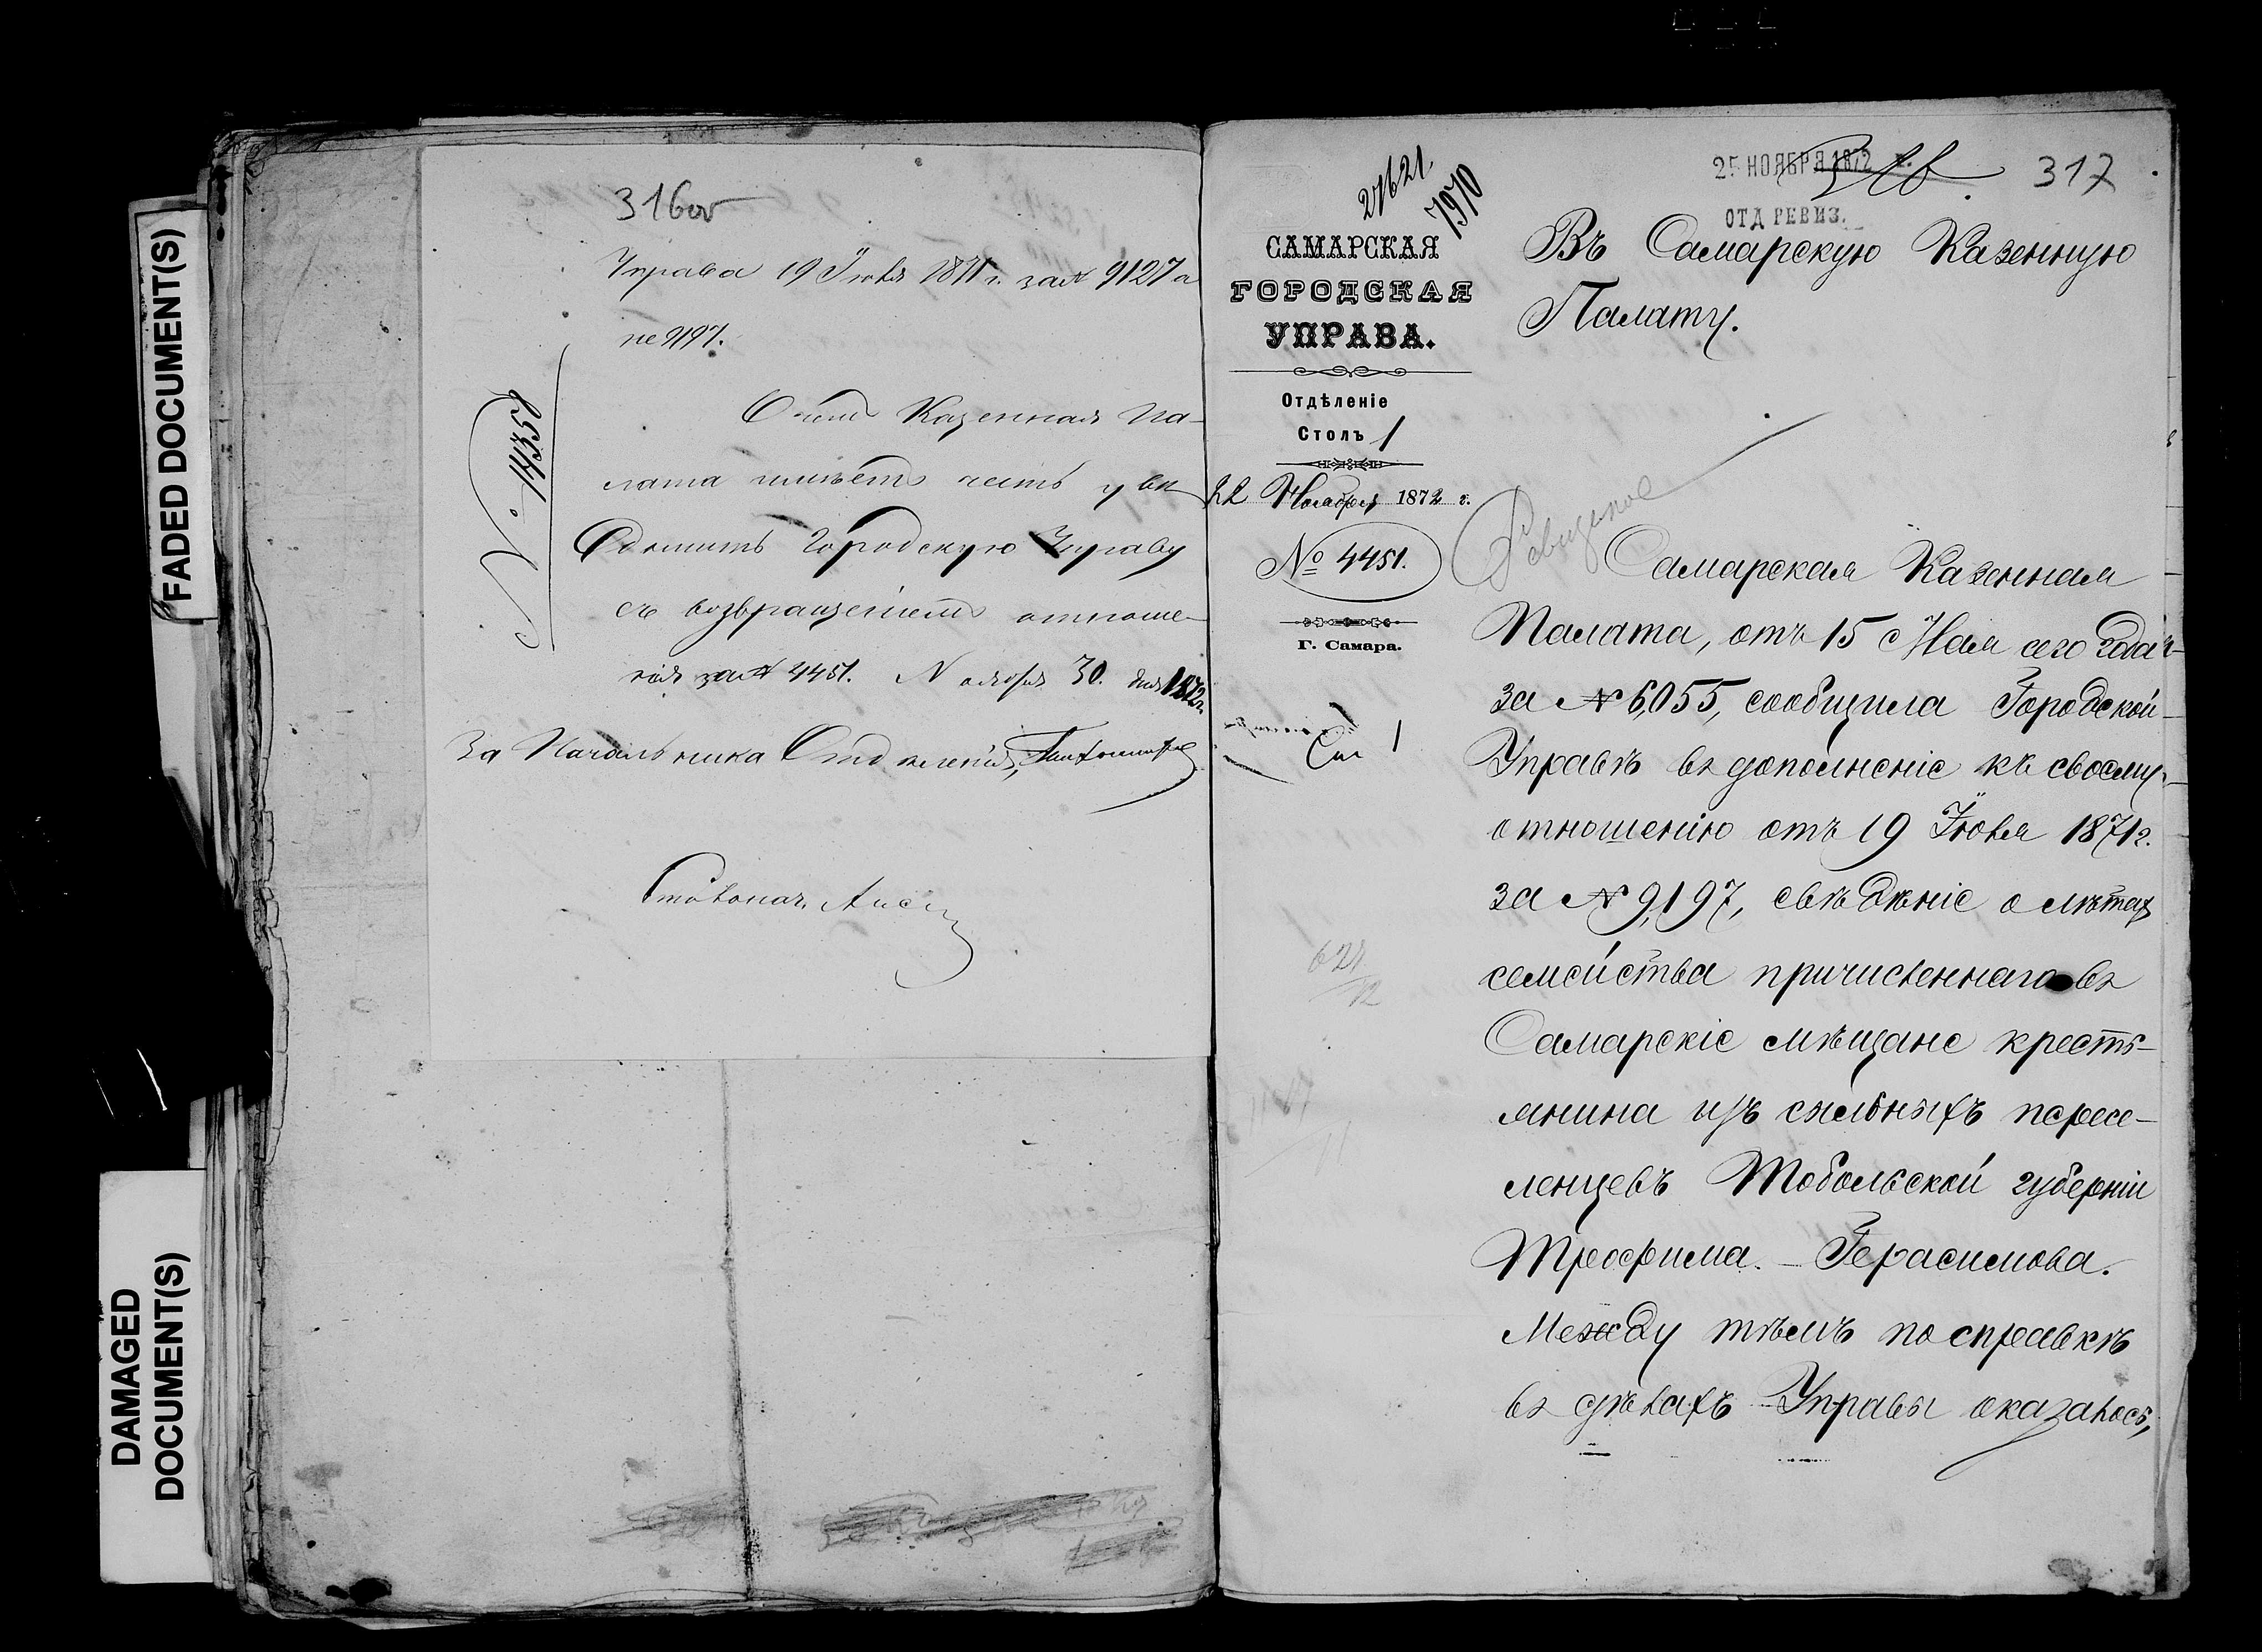 FADED DOCUMENT(S)
DAMAGED
DOCUMENT(S)
316об
Управа 19 Іюля 1871 г. за № 9127 а
не 9197.
№ 14358
О чемъ Казенная Па-
лата имѣетъ честь увѣ
домить Городскую Управу
съ возвращеніемъ отноше-
нія за № 4451. Ноября 30 дня 1872 г.
За Начальника Отдѣленія,
Столонач.
27621
7970
САМАРСКАЯ
ГОРОДСКАЯ
УПРАВА.
Отдѣленіе
Столъ 1
22 Ноября 1872 г.
№ 4451.
Г. Самара.
Ст 1
621
12
25 НОЯБРЯ 1872
ОТД РЕВИЗ.
317
Въ Самарскую Казенную
Палату.
Самарская Казенная
Палата, отъ 15 Мая сего года
за № 6,055, сообщила Городской
Управѣ въ дополненіе къ своему
отношенію отъ 19 Іюля 1871 г.
за № 9,197, свѣдѣніе о лѣтах
семейства причисленнаго въ
Самарскіе мѣщане кресть-
янина изъ сыльныхъ пересе-
ленцевъ Тобольской губерніи
Трофима Герасимова.
Между тѣмъ по справкѣ
въ дѣлахъ Управы оказалось,